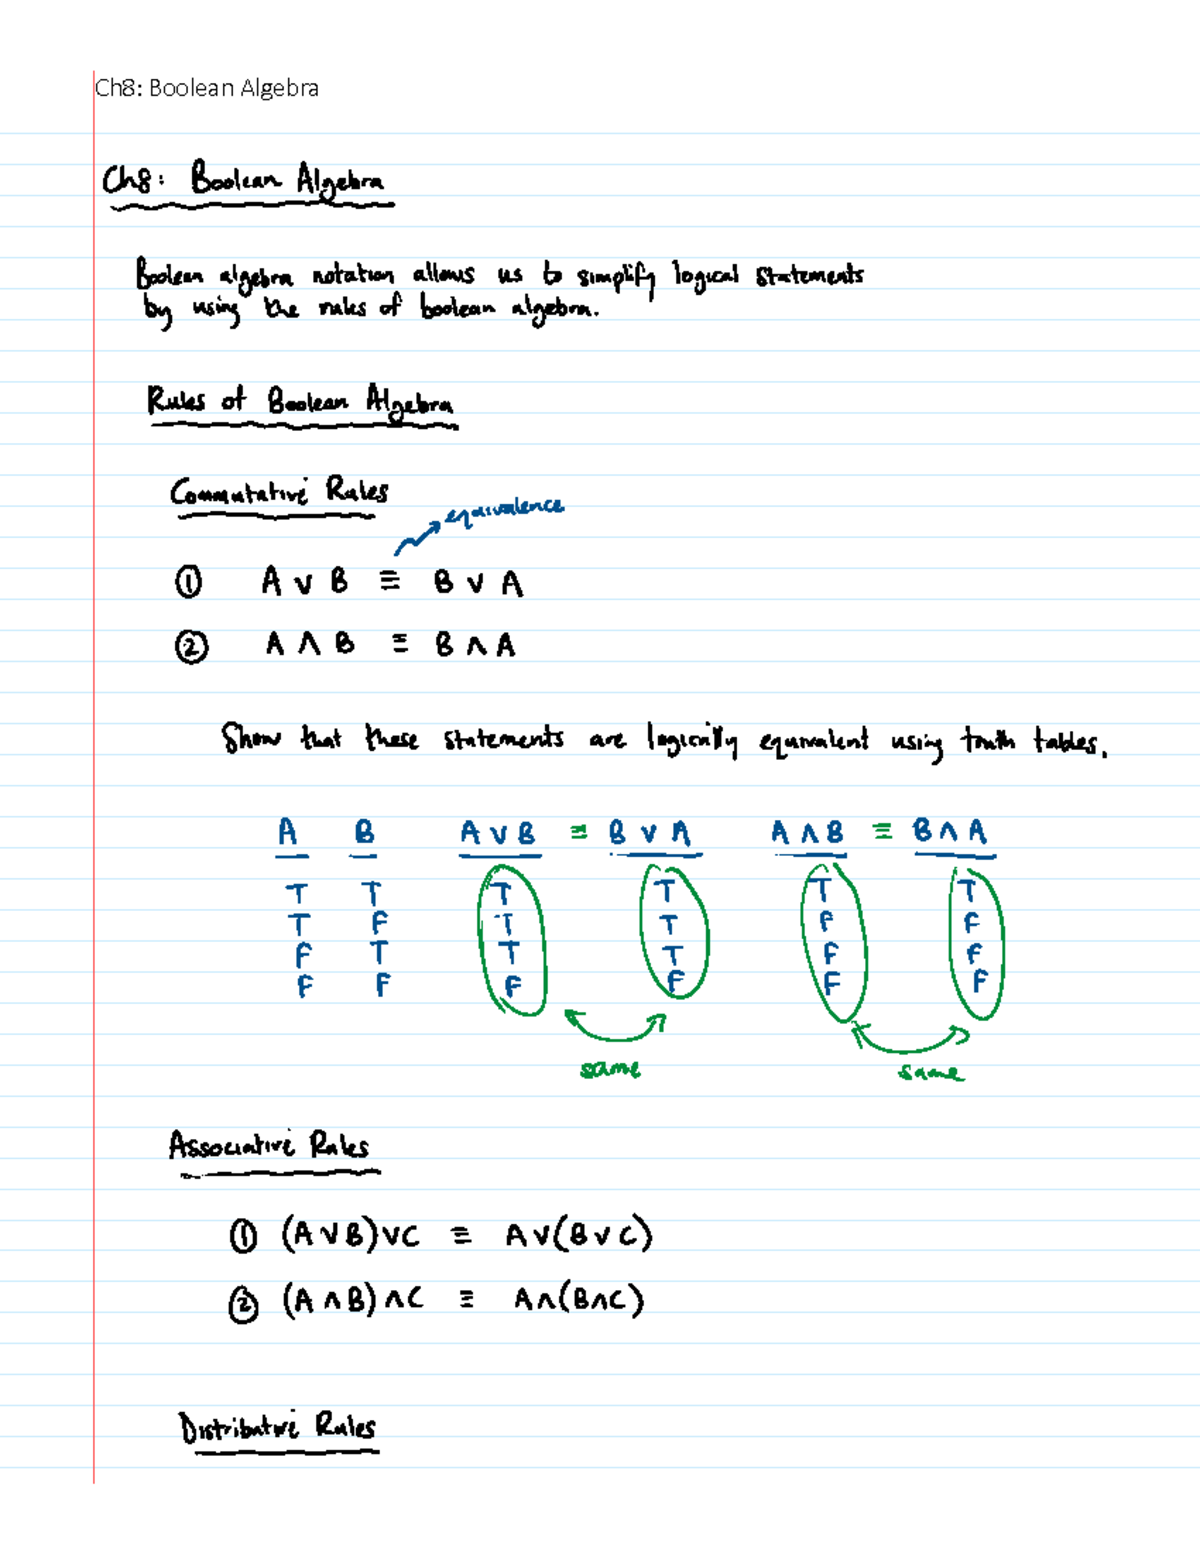 Ch8: Boolean Algebra
Ch8: Boolean Algebra
Boolean algebra notation allows us to simplify logical statements
by using the rules of boolean algebra.
Rules of Boolean Algebra
Commutative Rules
equivalence
① A ∨ B ≡ B ∨ A
② A ∧ B ≡ B ∧ A
Show that these statements are logically equivalent using truth tables.
A B A ∨ B ≡ B ∨ A A ∧ B ≡ B ∧ A
T T T T T T
T F T T F F
F T T T F F
F F F F F F
same same
Associative Rules
① (A ∨ B) ∨ C ≡ A ∨ (B ∨ C)
② (A ∧ B) ∧ C ≡ A ∧ (B ∧ C)
Distributive Rules